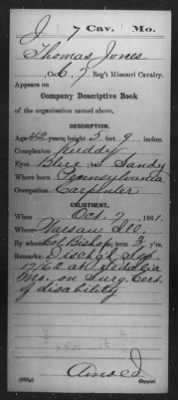 J 7 Cav. Mo.
Thomas Jones
, Co. C, 7 Reg't Missouri Cavalry.
Appears on
Company Descriptive Book
of the organization named above.
DESCRIPTION.
Age 44 years; height 5 feet 9 inches.
Complexion Ruddy
Eyes Blue; hair Sandy
Where born Pennsylvania
Occupation Carpenter
ENLISTMENT.
When Oct. 7, 1861.
Where Warsaw Ill.
By whom Col Bishop; term 3 y'rs.
Remarks: Dischgd Sep.
17/62 at Sedalia
Mo. on Surg. Cert.
of disability
Copyist.